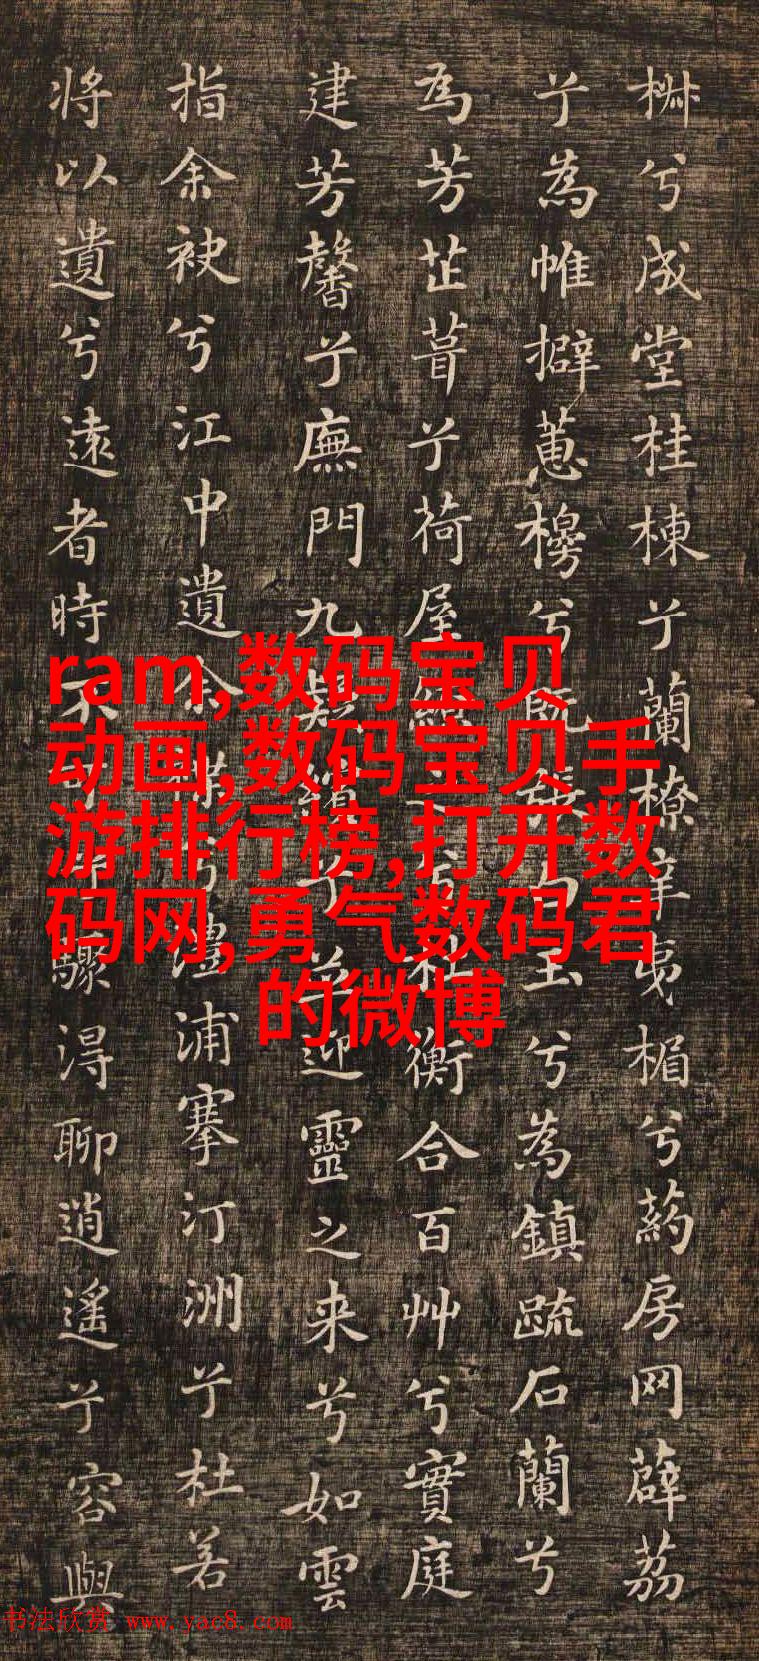 椒兮成堂桂棟兮蘭橑辛夷楣兮葯房网薜荔
兮為帷擗蕙櫋兮既張白玉兮為鎮疏石蘭兮
為芳芷葺兮荷屋繚之兮杜衡合百艸兮實庭
建芳馨兮廡門九嶷繽兮並迎靈之来兮如雲
指余袂兮江中遺余褋兮澧浦搴汀洲兮杜若
将以遺兮遠者時不可兮驟得聊逍遙兮容與
ram,数码宝贝
动画,数码宝贝手
游排行榜,打开数
码网,勇气数码君
的微博
书法欣赏 www.yac8.com